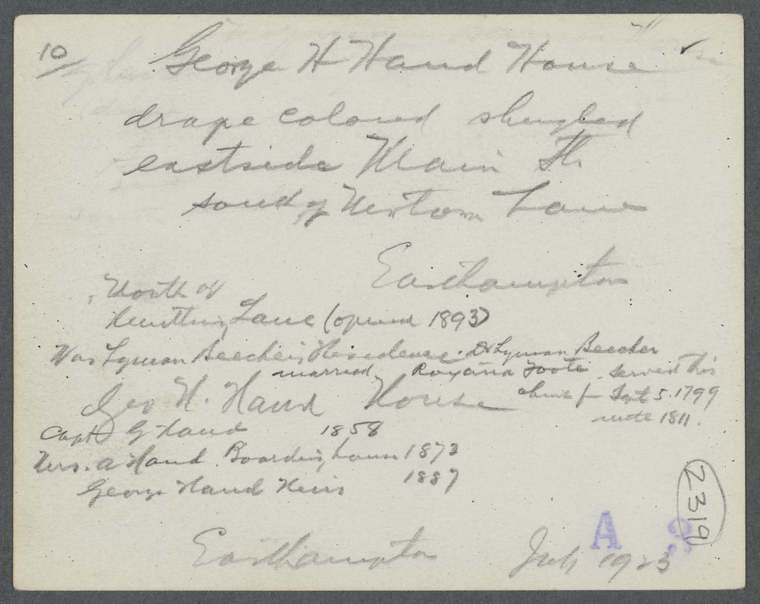 10
George H Hand House ✓
drape colored shingled
eastside Main St
south of Newtown Lane
Easthampton
North of
Huntting Lane (opened 1893)
Was Lyman Beecher's Residence. Dr Lyman Beecher
married Roxana Foote served this
church f Sept 5. 1799
until 1811.
Geo H. Hand House
Capt G Hand 1858
Mrs. A Hand Boarding house 1873
George Hand Heirs 1887
2319
A
Easthampton July 1923